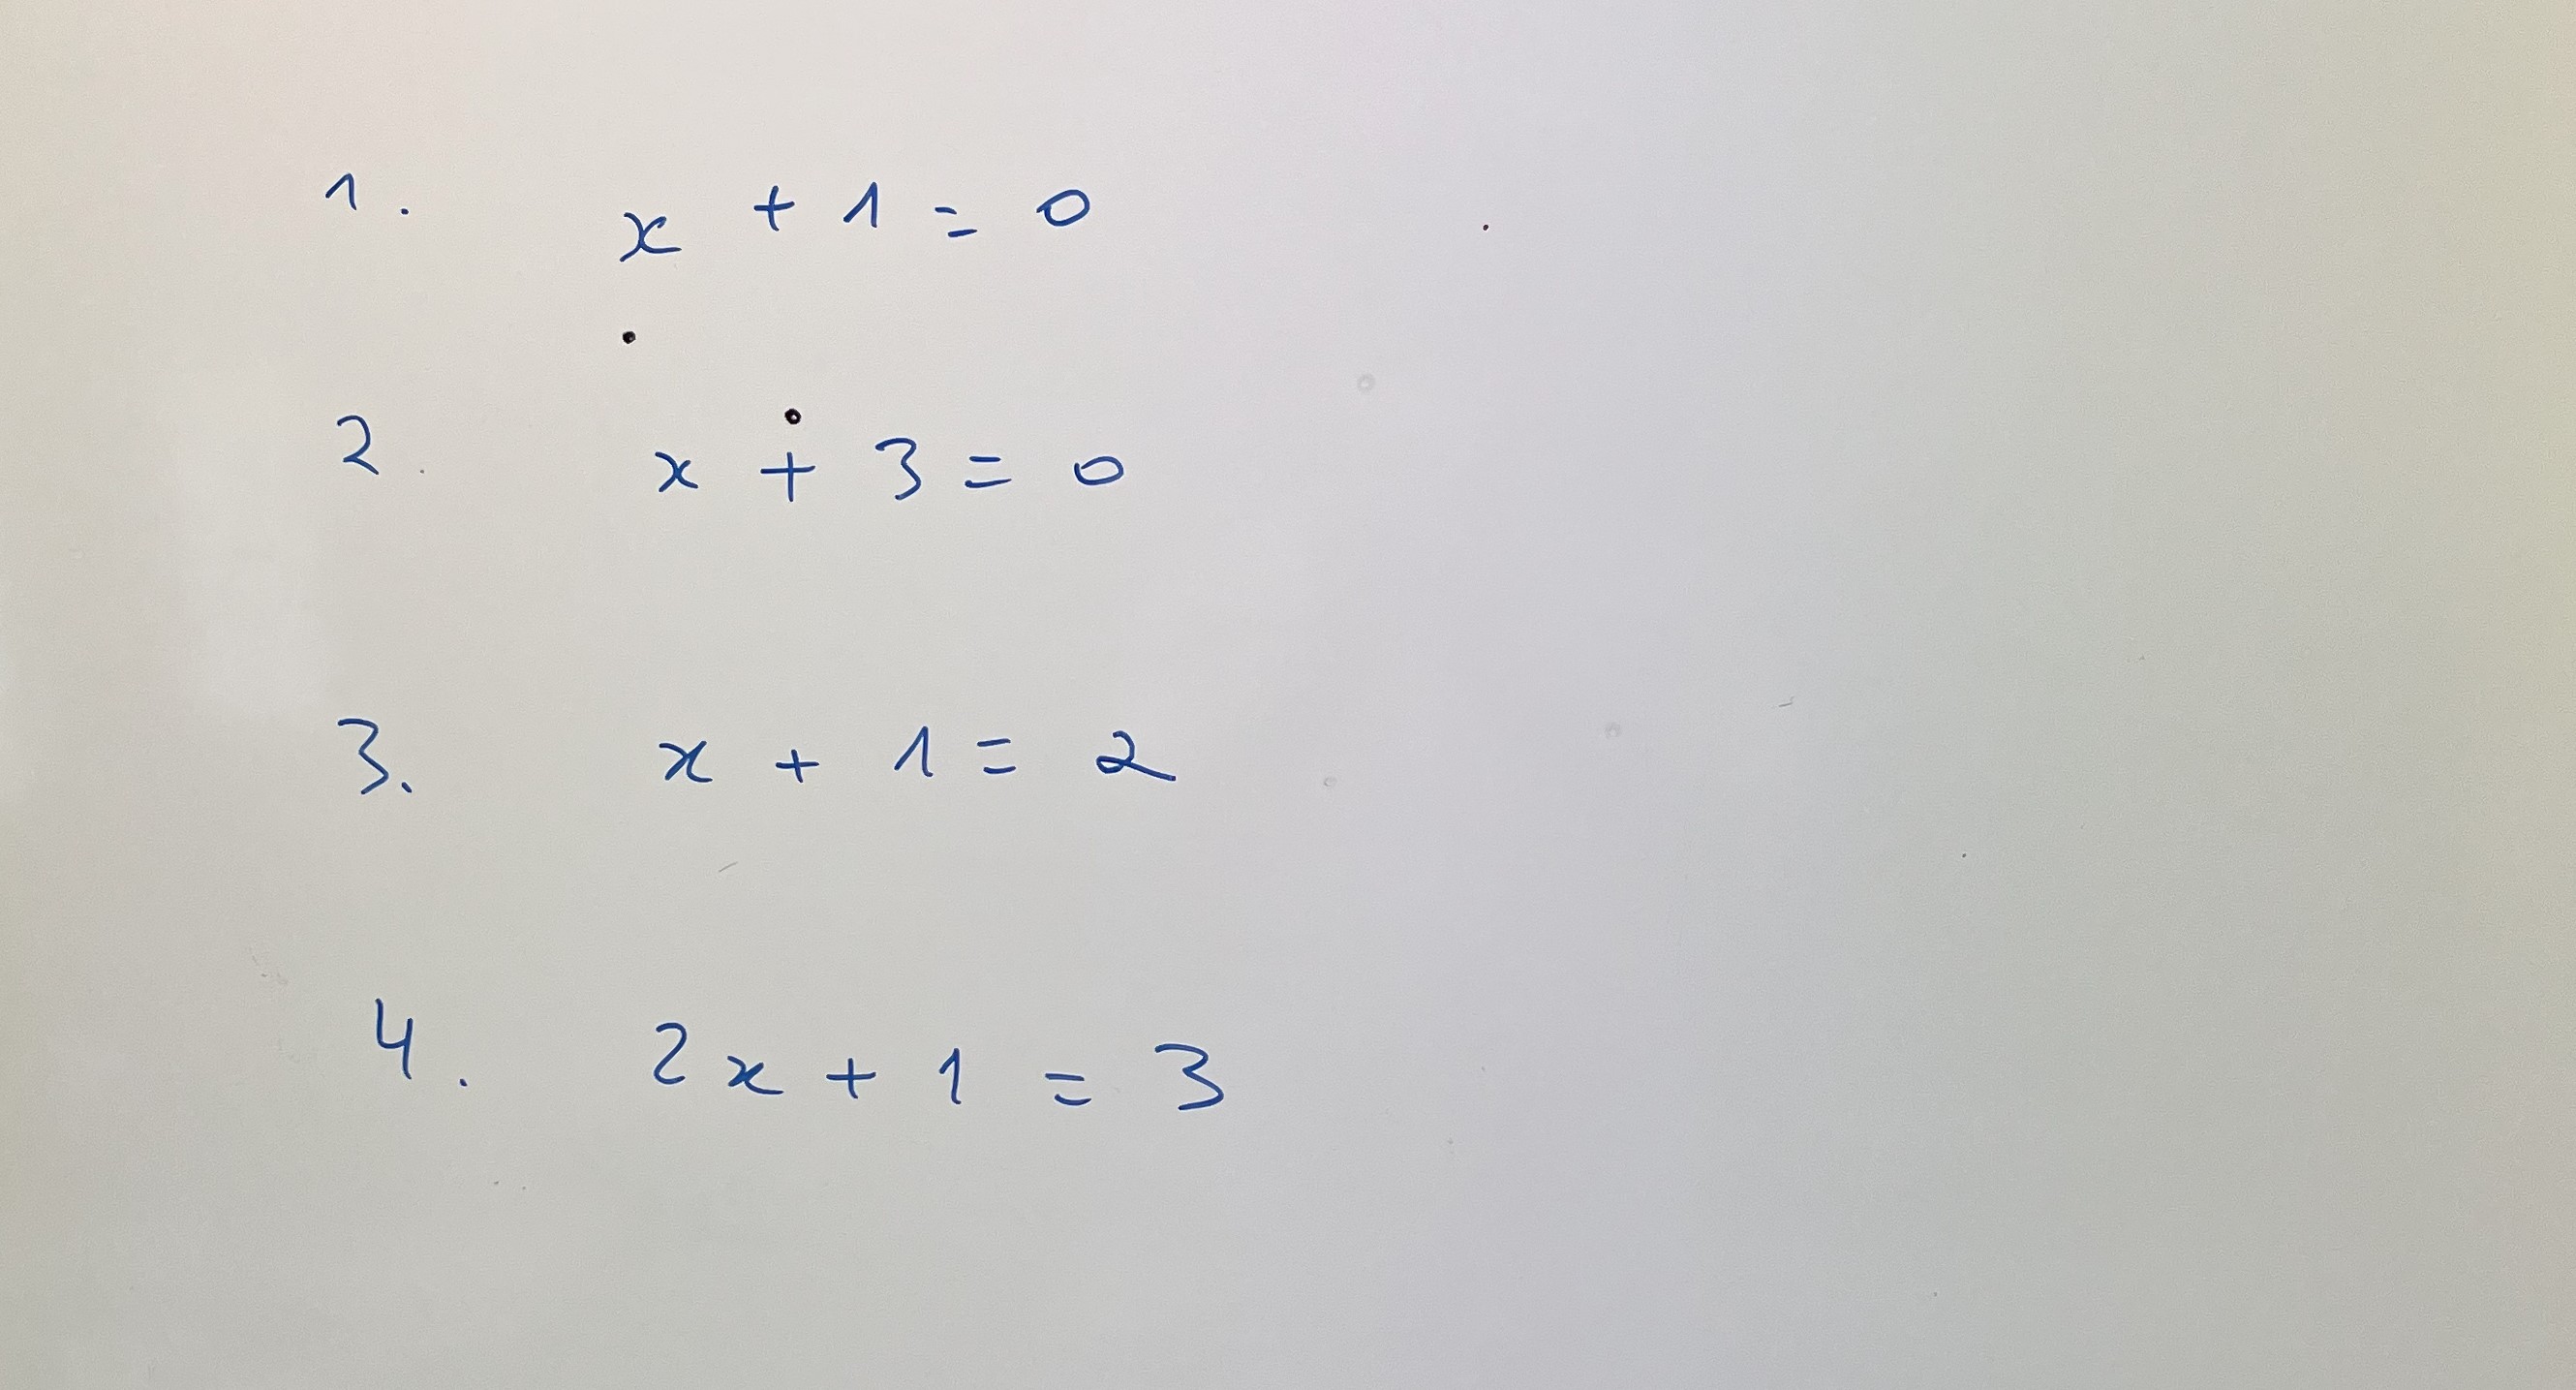 1. x + 1 = 0
2. x + 3 = 0
3. x + 1 = 2
4. 2x + 1 = 3